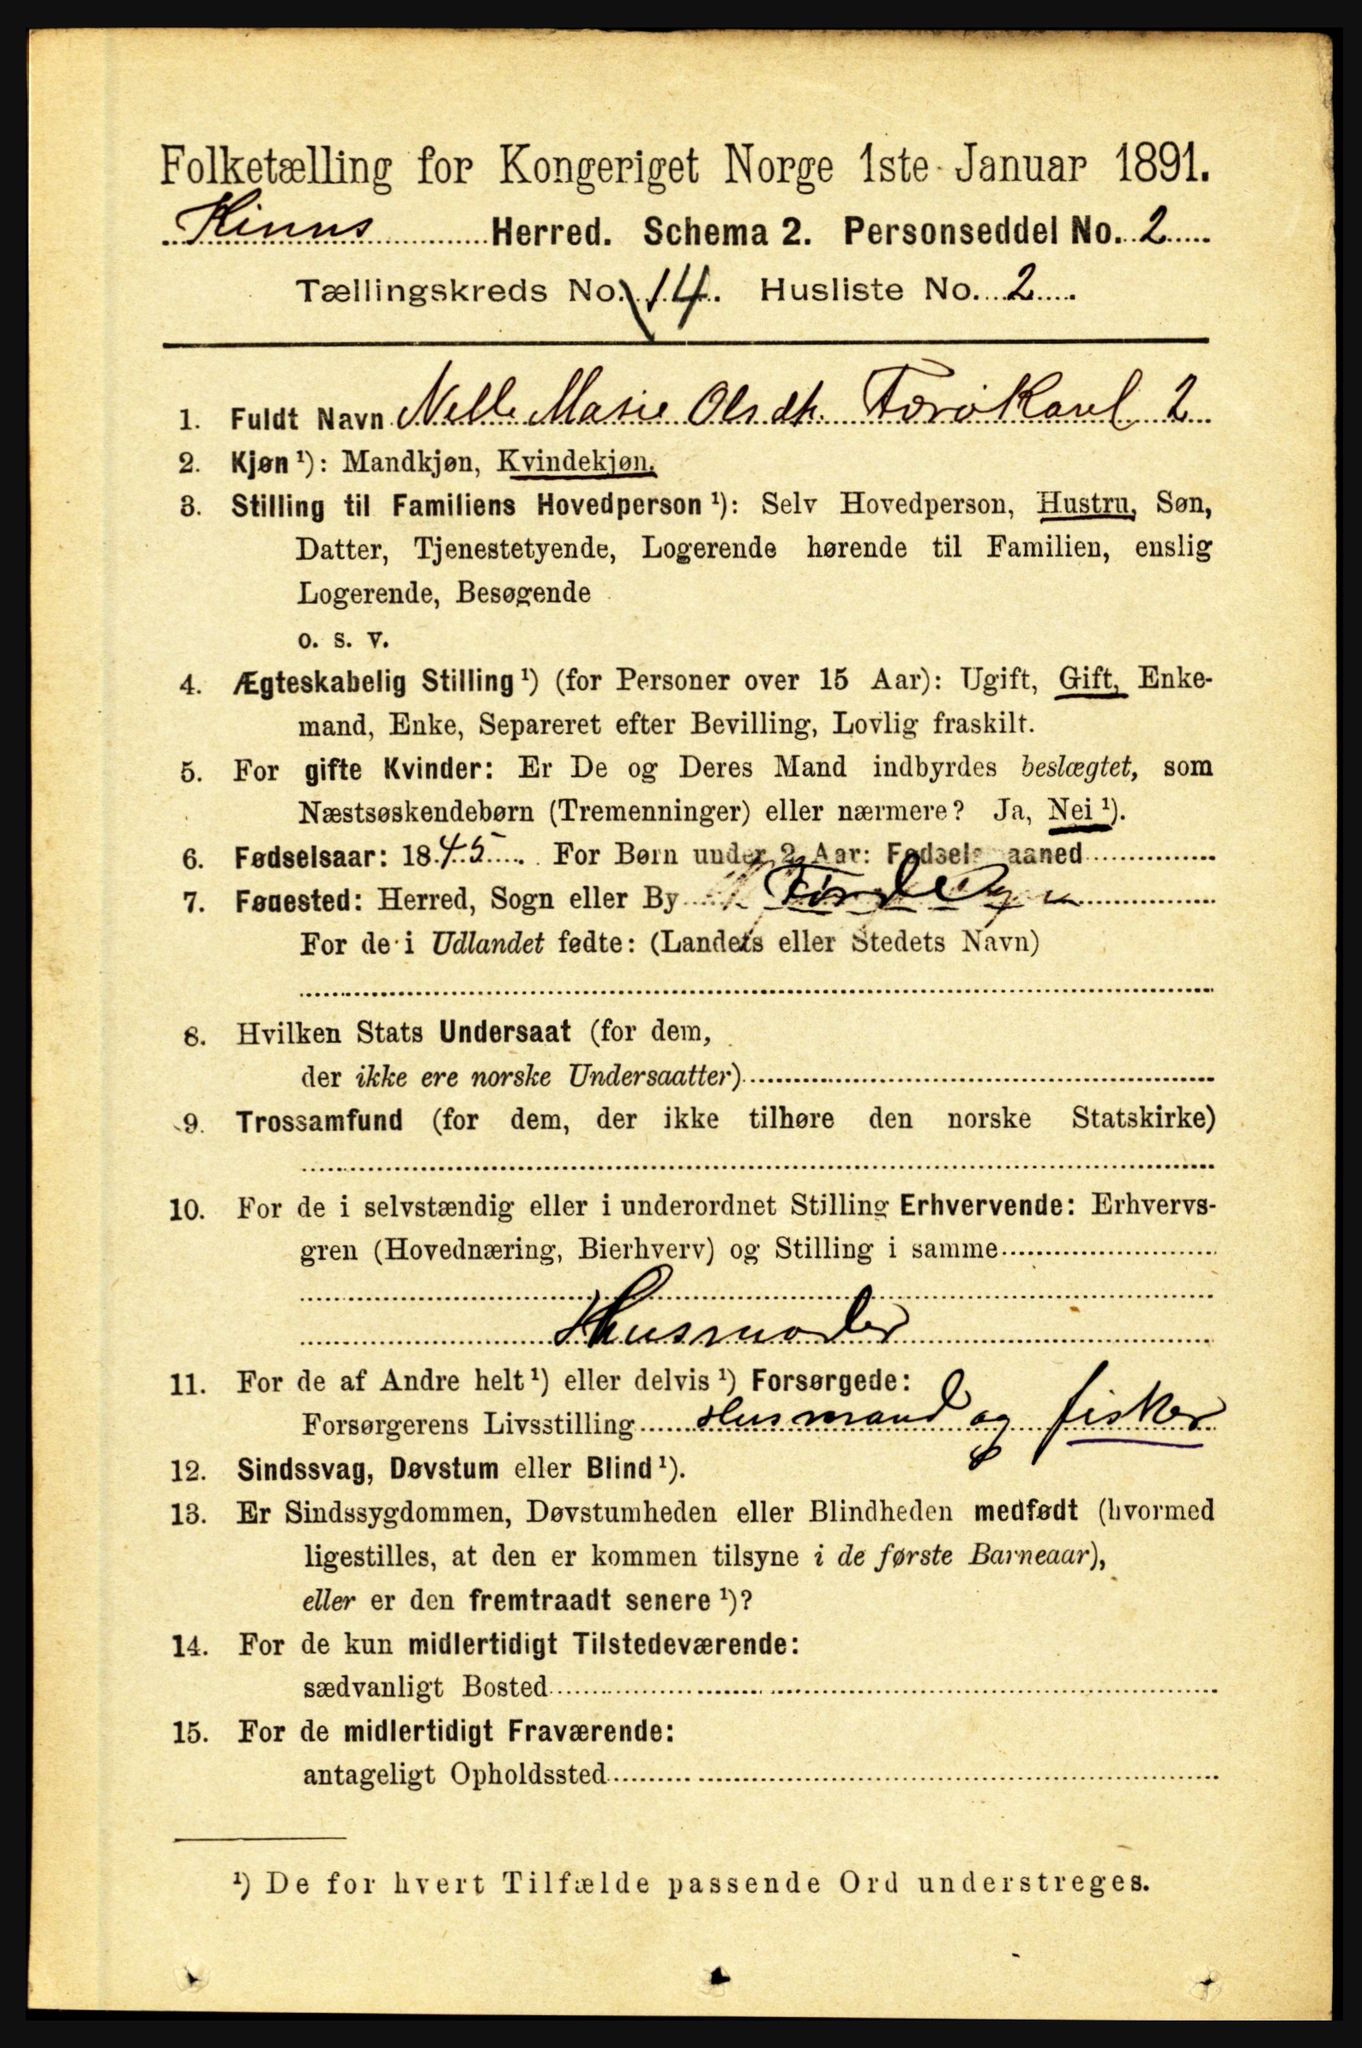 Folketælling for Kongeriget Norge 1ste Januar 1891.
Kinns Herred. Schema 2. Personseddel No. 2
Tællingskreds No. 14. Husliste No. 2
1. Fuldt Navn Nelle Marie Olsdt. 2
2. Kjøn ¹): Mandkjøn, Kvindekjøn.
3. Stilling til Familiens Hovedperson ¹): Selv Hovedperson, Hustru, Søn,
Datter, Tjenestetyende, Logerende hørende til Familien, enslig
Logerende, Besøgende
o. s. v.
4. Ægteskabelig Stilling ¹) (for Personer over 15 Aar): Ugift, Gift, Enke-
mand, Enke, Separeret efter Bevilling, Lovlig fraskilt.
5. For gifte Kvinder: Er De og Deres Mand indbyrdes beslægtet, som
Næstsøskendebørn (Tremenninger) eller nærmere? Ja, Nei ¹).
6. Fødselsaar: 1845. For Børn under 2 Aar: Fødselsmaaned
7. Føuested: Herred, Sogn eller By Førde
For de i Udlandet fødte: (Landets eller Stedets Navn)
8. Hvilken Stats Undersaat (for dem,
der ikke ere norske Undersaatter)
9. Trossamfund (for dem, der ikke tilhøre den norske Statskirke)
10. For de i selvstændig eller i underordnet Stilling Erhvervende: Erhvervs-
gren (Hovednæring, Bierhverv) og Stilling i samme
Husmoder
11. For de af Andre helt ¹) eller delvis ¹) Forsørgede:
Forsørgerens Livsstilling Husmand og fisker
12. Sindssvag, Døvstum eller Blind ¹).
13. Er Sindssygdommen, Døvstumheden eller Blindheden medfødt (hvormed
ligestilles, at den er kommen tilsyne i de første Barneaar),
eller er den fremtraadt senere ¹)?
14. For de kun midlertidigt Tilstedeværende:
sædvanligt Bosted
15. For de midlertidigt Fraværende:
antageligt Opholdssted
¹) De for hvert Tilfælde passende Ord understreges.